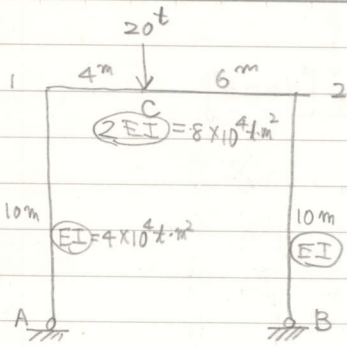 20t
1 4m 6m 2
C
2EI = 8×10⁴t·m²
10m 10m
EI = 4×10⁴t·m² EI
A B